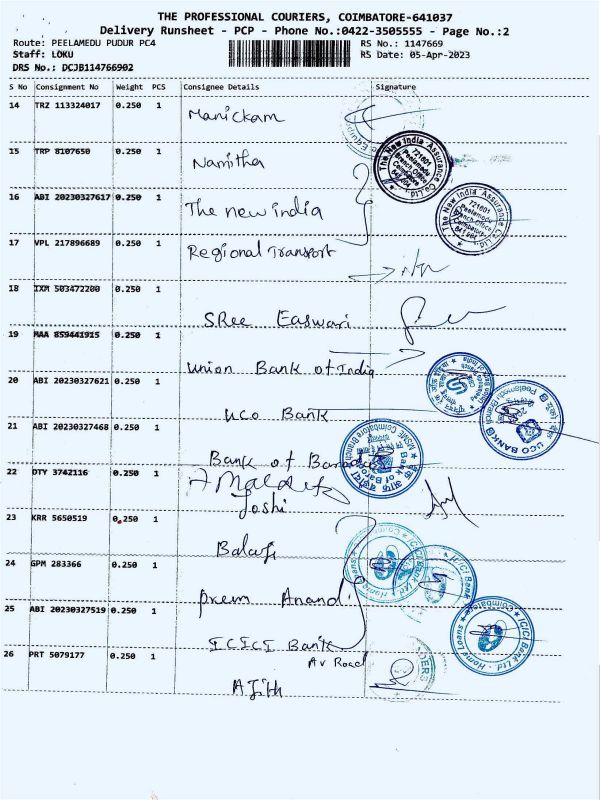 THE PROFESSIONAL COURIERS, COIMBATORE-641037
Delivery Runsheet - PCP - Phone No.:0422-3505555 - Page No.:2
Route: PEELAMEDU PUDUR PC4
RS No.: 1147669
Staff: LOKU
RS Date: 05-Apr-2023
DRS No.: DCJB114766902
S No Consignment No Weight PCS Consignee Details Signature
14 TRZ 113324017 0.250 1 Manickam
15 TRP 8107650 0.250 1 Namitha
The New India Assurance Co. Ltd. 721601 Peelamedu Branch Office Coimbatore 641 004
16 ABI 20230327617 0.250 1 The new india
The New India Assurance Co. Ltd. 721601 Peelamedu Branch Office Coimbatore 641 004
17 VPL 217896689 0.250 1 Regional Transport
18 IXM 503472200 0.250 1 SRee Easwari
19 MAA 859441915 0.250 1 Union Bank of India
20 ABI 20230327621 0.250 1 UCO Bank
UCO BANK Peelamedu Branch
21 ABI 20230327468 0.250 1 Bank of Baroda
Bank of Baroda MSME Coimbatore Branch
22 DTY 3742116 0.250 1 Joshi
23 KRR 5650519 0.250 1 Balaji
24 GPM 283366 0.250 1 Prem Anand
25 ABI 20230327519 0.250 1 ICICI Bank
Av Road
ICICI Bank Ltd. Home Loans Coimbatore
26 PRT 5079177 0.250 1 Ajith